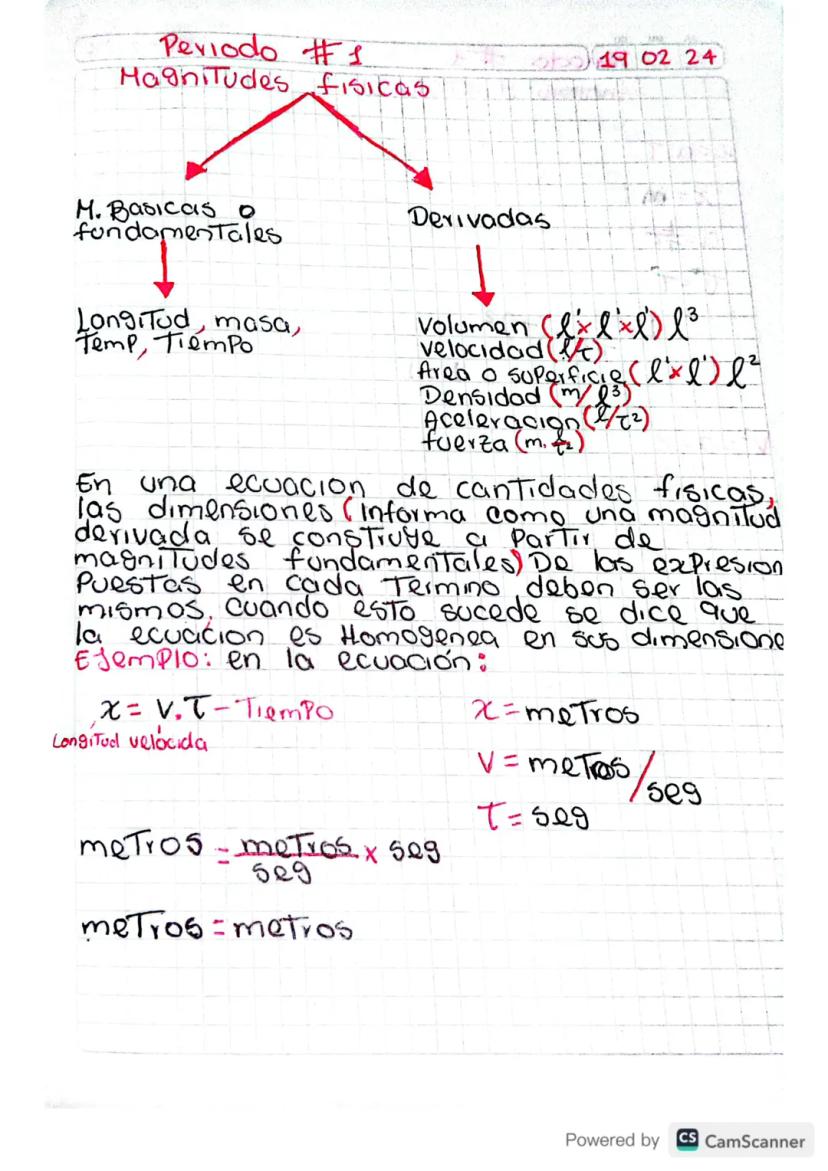 Periodo #1
19 02 24
Magnitudes fisicas
M. Basicas o
fundamentales
Derivadas
Longitud, masa,
Temp, Tiempo
Volumen (l¹×l¹×l¹) l³
velocidad (l/t)
Area o superficie (l¹×l¹) l²
Densidad (m/l³)
Aceleracion (l/t²)
fuerza (m. l/t²)
En una ecuacion de cantidades fisicas,
las dimensiones (informa como una magnitud
derivada se construye a partir de
magnitudes fundamentales) De las expresion
Puestas en cada Termino deben ser las
mismos, cuando esto sucede se dice que
la ecuacion es Homogenea en sus dimensione
EJemplo: en la ecuación:
x = v.t - Tiempo
Longitud velocida
x = metros
v = metros/seg
t = seg
metros = metros/seg x seg
metros = metros
Powered by CS CamScanner